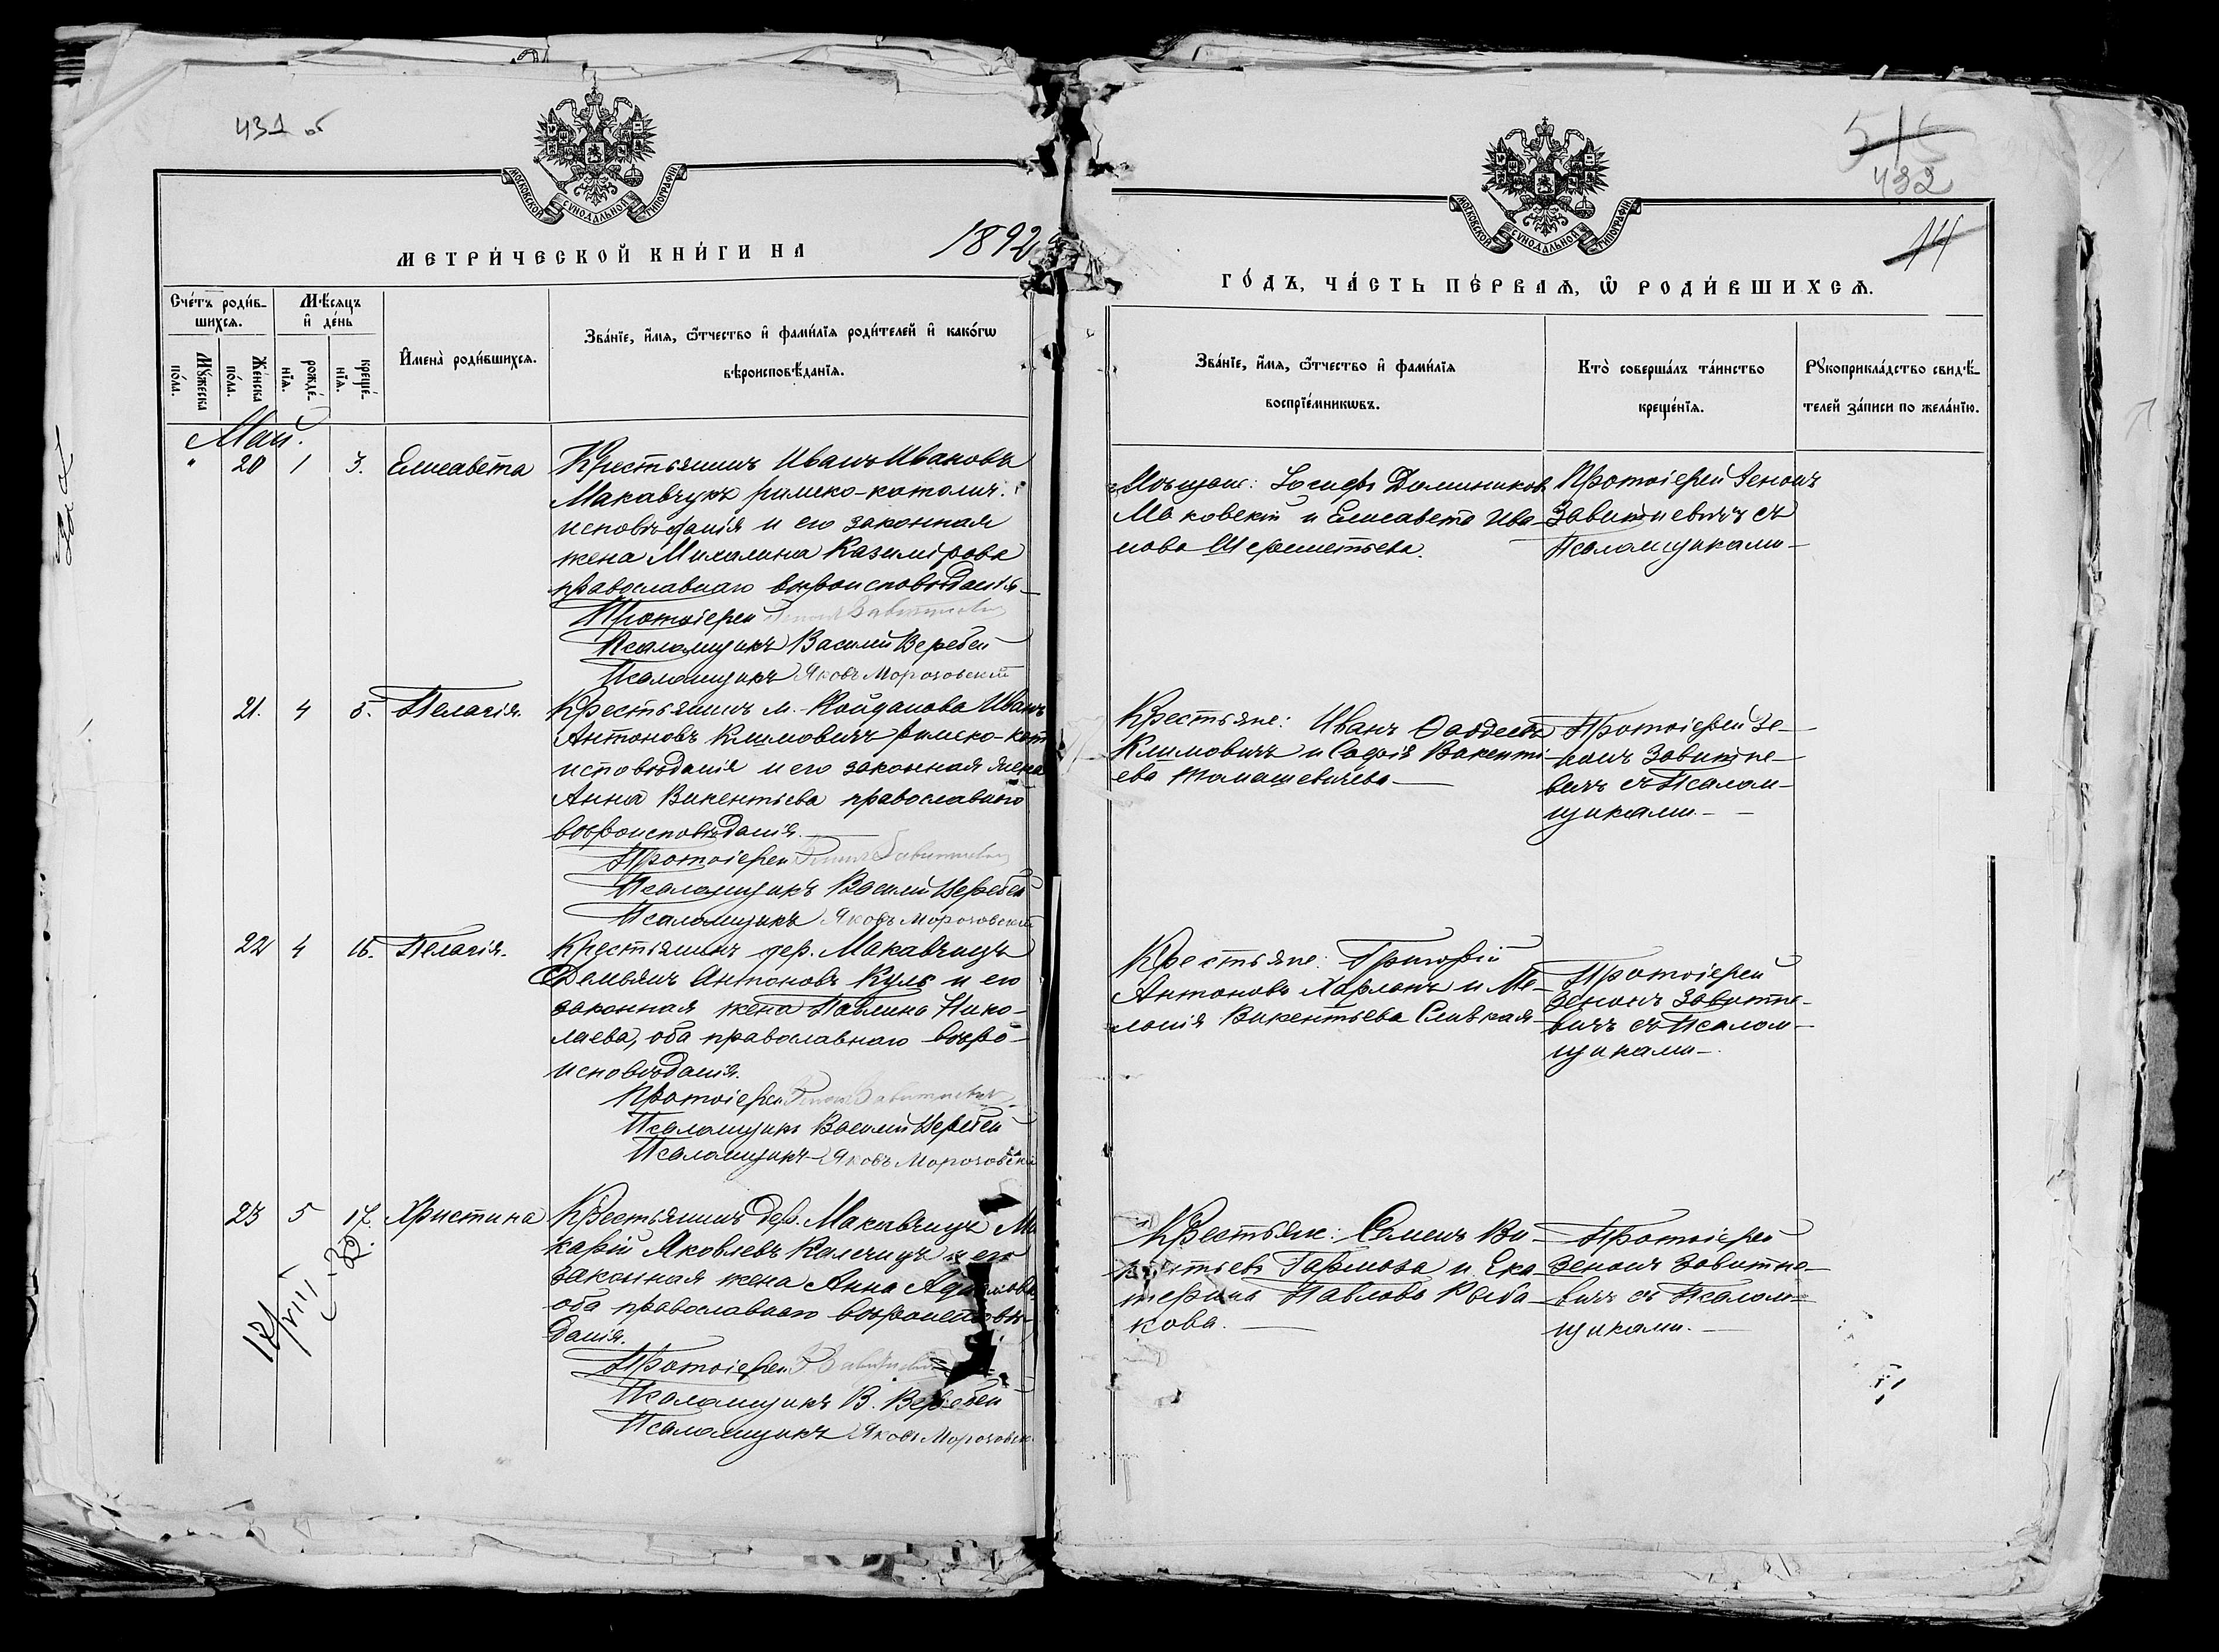 431 об
МОСКОВСКОЙ СѴНОДАЛЬНОЙ ТИПОГРАФІИ
МЕТРИ́ЧЕСКОЙ КНИ́ГИ НА 1892
Сче́тъ роди́в-
шихсѧ.
Мѣ́сѧцъ
и҆ де́нь
Мꙋ́жеска
по́ла.
Же́нска
по́ла.
рожде́-
нїѧ.
креще́-
нїѧ.
И҆мена̀ роди́вшихсѧ.
Зва́нїе, и҆́мѧ, ѻ҆́тчество и҆ фами́лїѧ роди́телей и҆ како́гѡ
вѣроисповѣ́данїѧ.
Май.
" 20 1 3. Елисавета
Крестьянинъ Иванъ Ивановъ
Макавчукъ римско-католич.
исповѣданія и его законная
жена Михалина Казимірова
православнаго вѣроисповѣданія
Протоіерей
Псаломщикъ Василій Веребей
Псаломщикъ Яковъ Морозовскій
21. 4 5. Пелагія.
Крестьянинъ м. Койданова Иванъ
Антоновъ Климовичъ римско-кат
исповѣданія и его законная жена
Анна Викентьева православнаго
вѣроисповѣданія.
Протоіерей
Псаломщикъ Василій Веребей
Псаломщикъ Яковъ Морозовскій
22 4 16. Пелагія.
Крестьянинъ дер. Макавчицъ
Демьянъ Антоновъ Куль и его
законная жена Павлина Нико-
лаева, оба православнаго вѣро-
исповѣданія.
Протоіерей
Псаломщикъ Василій Веребей
Псаломщикъ Яковъ Морозовскій
23 5 17. Христина
Крестьянинъ дер. Макавчицъ Ма
карій Яковлевъ Калечицъ и его
законная жена Анна Адамова
оба православнаго вѣроисповѣ-
данія.
Протоіерей
Псаломщикъ В. Веребей
Псаломщикъ Яковъ Морозовск
432
14
МОСКОВСКОЙ СѴНОДАЛЬНОЙ ТИПОГРАФІИ
ГО́ДЪ, ЧА́СТЬ ПЕ́РВАѦ, Ѽ РОДИ́ВШИХСѦ.
Зва́нїе, и҆́мѧ, ѻ҆́тчество и҆ фами́лїѧ
воспрїе́мникѡвъ.
Кто̀ соверша́лъ та́инство
креще́нїѧ.
Рꙋкоприкла́дство свидѣ́-
телей за́писи по жела́нїю.
Мѣщане: Іосифъ Доминиковъ
Маковскій и Елисавета Ива-
нова Шереметьева.
Протоіерей Зенонъ
Завитневичъ съ
Псаломщиками
Крестьяне: Иванъ Ѳаддеевъ
Климовичъ и Софія Викенті-
ева Томашевичева
Протоіерей Зе-
нонъ Завитне-
вичъ съ Псалом-
щиками.
Крестьяне: Григорій
Антоновъ Харланъ и Ме-
ланія Викентьева Сливкая
Протоіерей
Зенонъ Завитне-
вичъ съ Псалом-
щиками
Крестьяне: Семенъ Ви-
кентьевъ Гармоза и Ека-
терина Павлова Рыба-
кова.
Протоіерей
Зенонъ Завитне-
вичъ съ Псалом-
щиками.